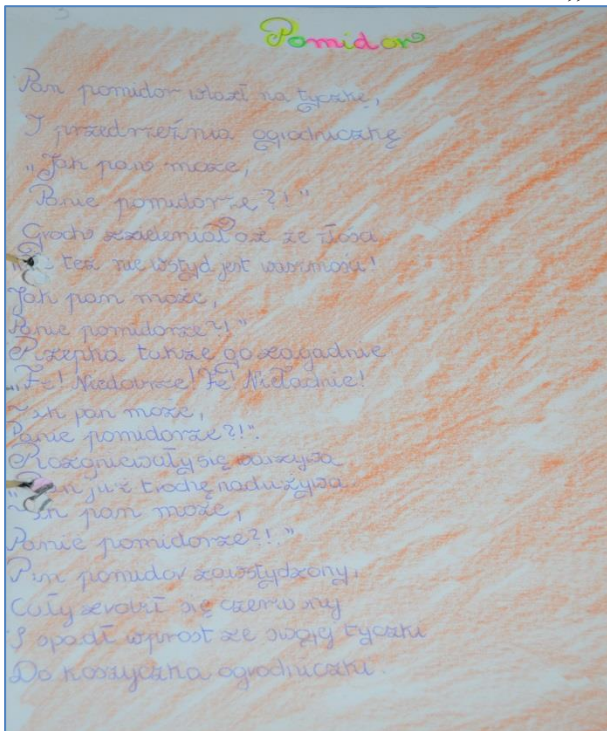 Pomidor
Pan pomidor wlazł na tyczkę,
I przedrzeźnia ogrodniczkę
"Jak pan może,
Panie pomidorze?!"
Groch zzieleniał aż ze złości
też nie wstyd jest waszmości!
Jak pan może,
Panie pomidorze?!"
Rzepka także go zagadnie
"Fe! Niedobrze! Fe! Nieładnie!
Jak pan może,
Panie pomidorze?!".
Rozgniewały się warzywa
"Pan już trochę nadużywa.
Jak pan może,
Panie pomidorze?!."
Pan pomidor zawstydzony,
Cały zrobił się czerwony
I spadł wprost ze swojej tyczki
Do koszyczka ogrodniczki.